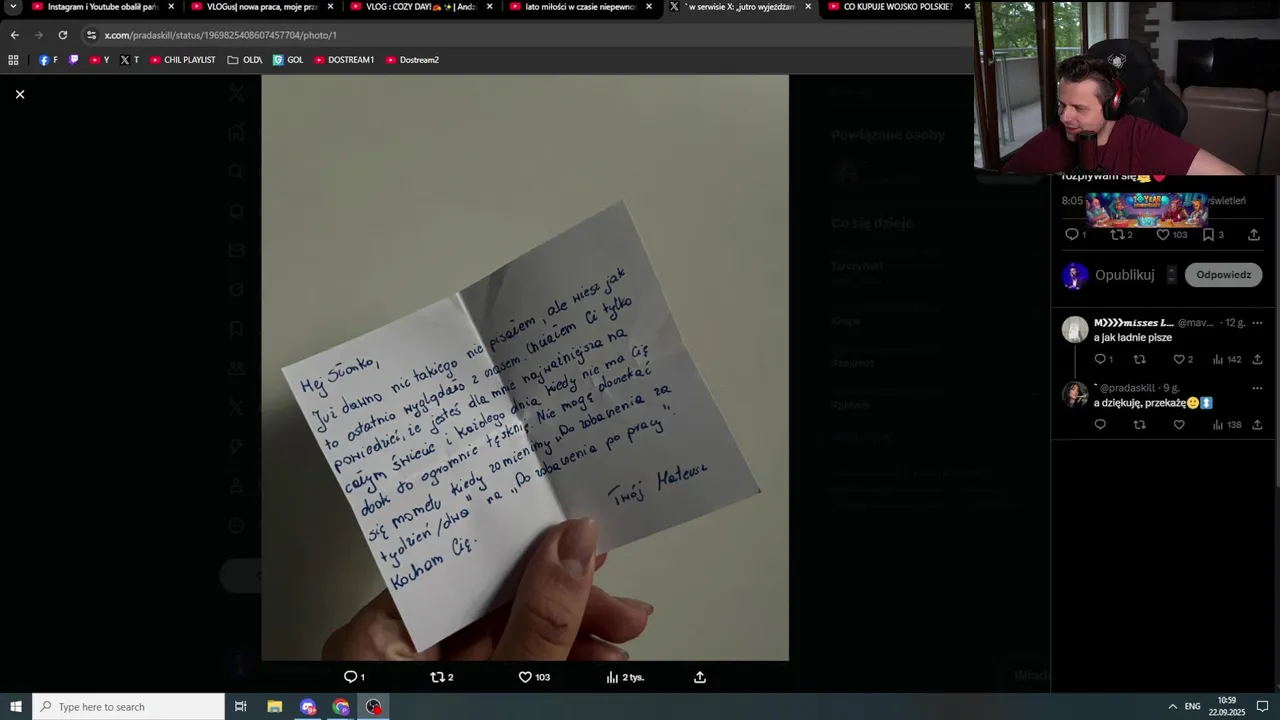 Instagram i Youtube obalił pańs
VLOGus| nowa praca, moje prze
VLOG : COZY DAY!
| Andz
lato miłości w czasie niepewno
` w serwisie X: „jutro wyjeżdżam
CO KUPUJE WOJSKO POLSKIE?
x.com/pradaskill/status/1969825408607457704/photo/1
F
Y
T
CHIL PLAYLIST
OLD\
GOL
DOSTREAM1
Dostream2
Powiązane osoby
Co się dzieje
Hej Słonko,
Już dawno nic takiego nie pisałem, ale wiesz jak
to ostatnio wyglądało z czasem. Chciałem Ci tylko
powiedzieć, że jesteś dla mnie najważniejsza na
całym świecie i każdego dnia kiedy nie ma Cię
obok to ogromnie tęsknię. Nie mogę doczekać
się momentu kiedy zamienimy „Do zobaczenia za
tydzień/dwa" na „Do zobaczenia po pracy".
Kocham Cię.
Twój Mateusz
1
2
103
2 tys.
rozpływam się
8:05
yświetleń
10 YEAR
1
2
103
3
Opublikuj
Odpowiedz
M❯❯❯❯misses L... @mav... · 12 g.
a jak ładnie pisze
1
2
142
` @pradaskill · 9 g.
a dziękuję, przekażę
138
Type here to search
ENG
10:59
22.09.2025